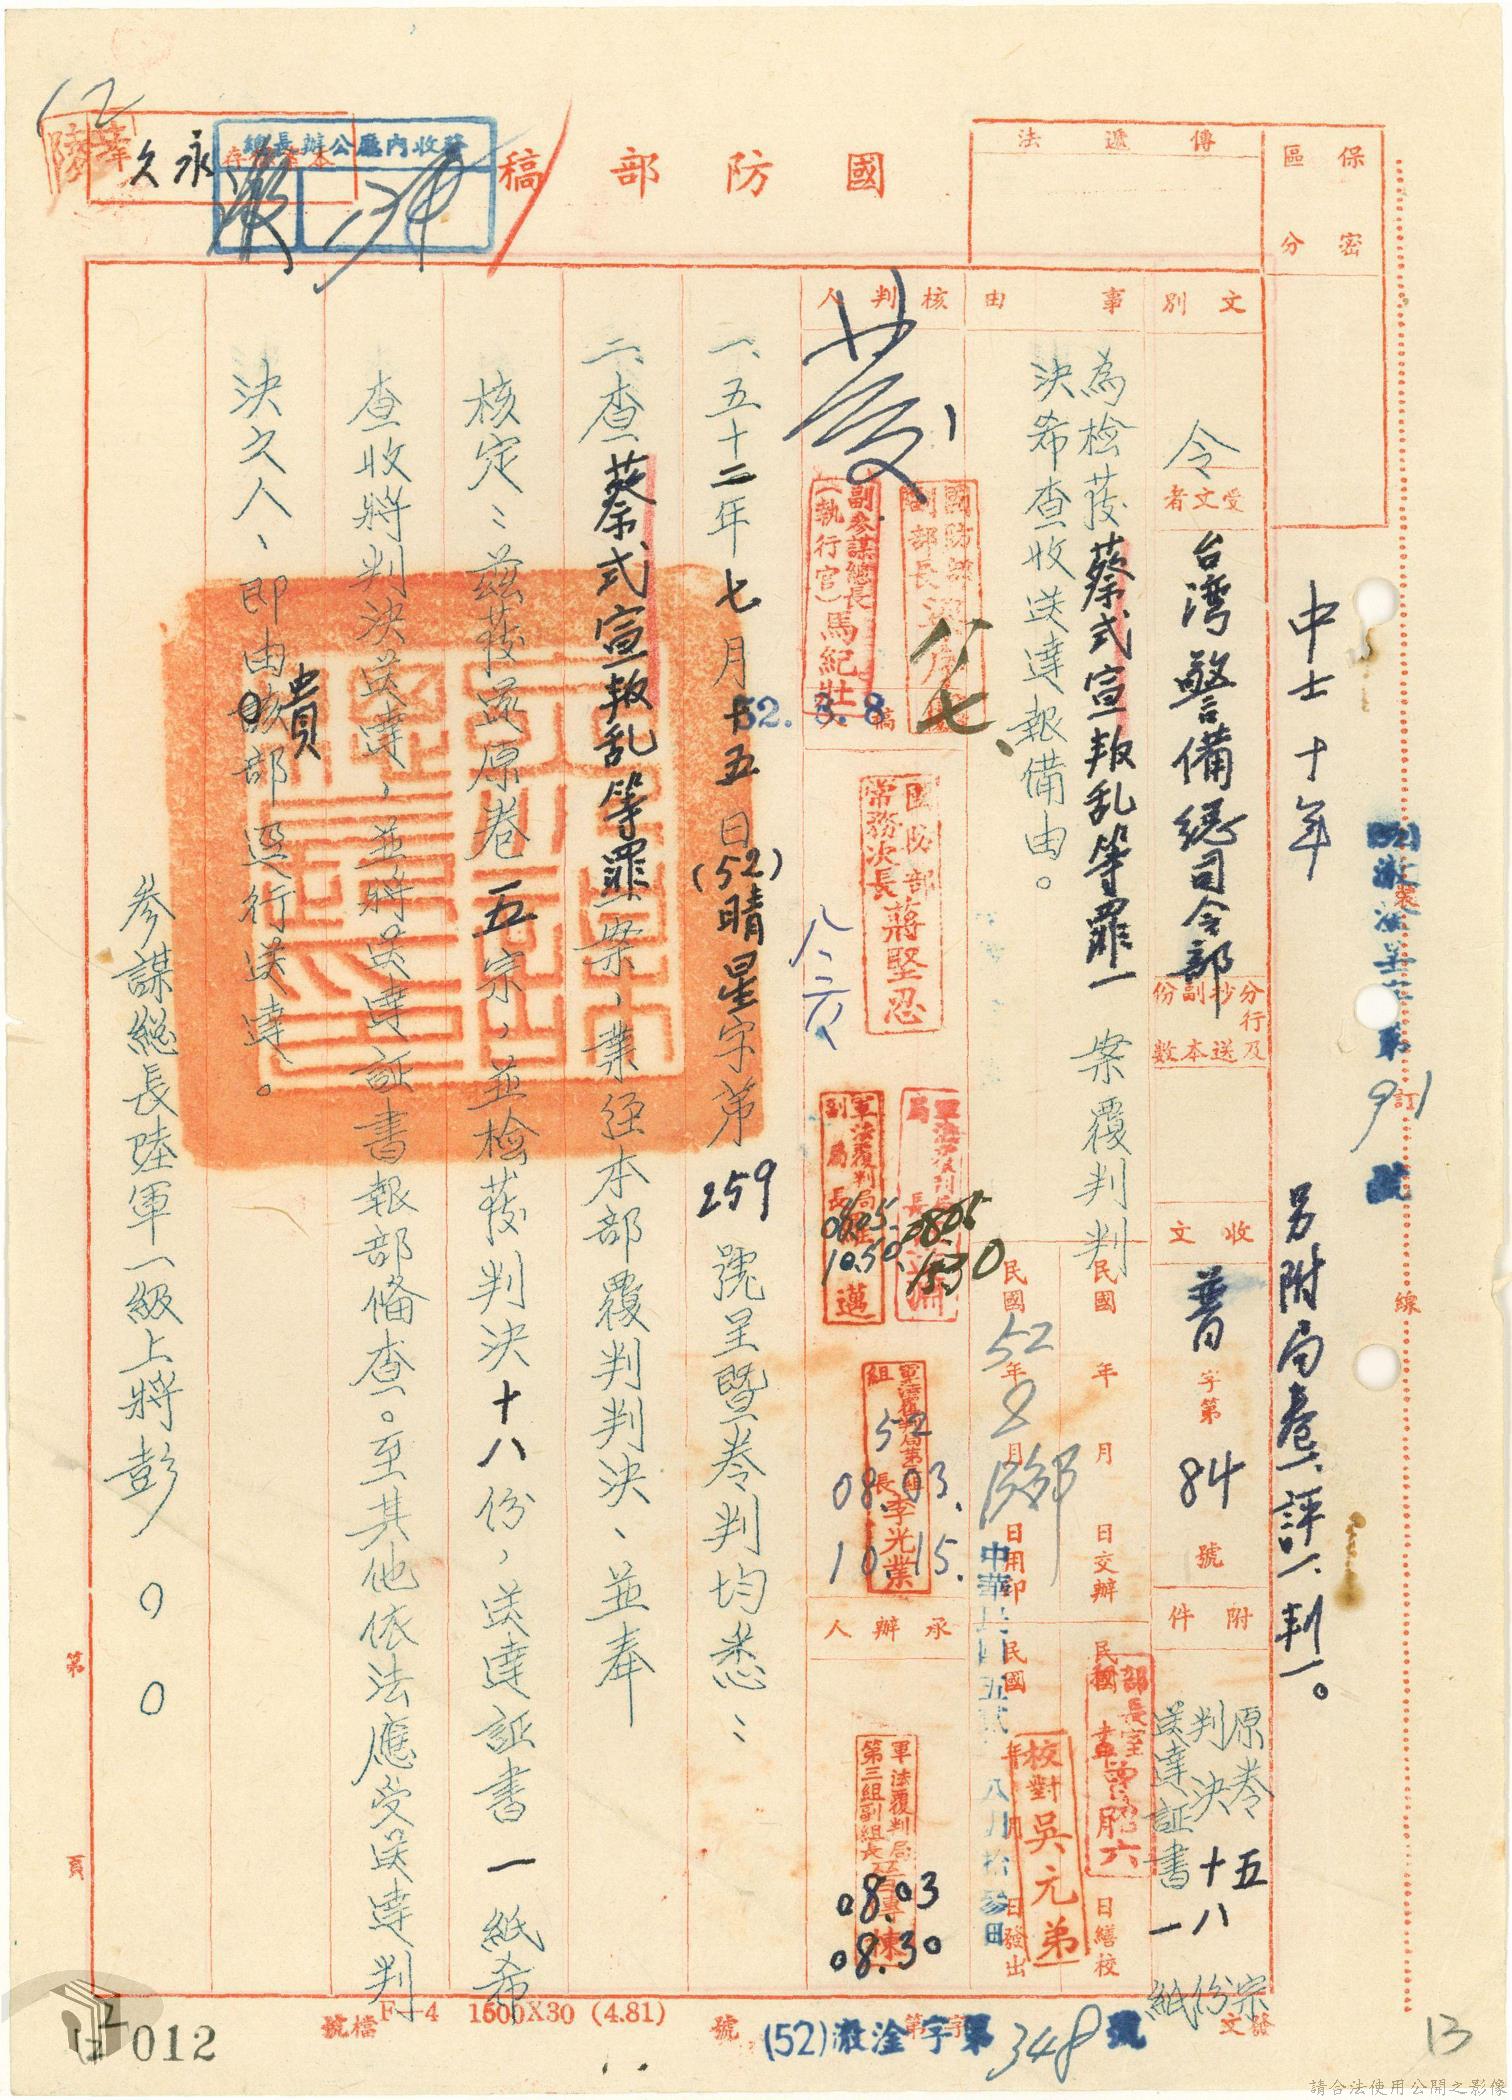 國防部稿
保密區分
傳遞法
總長辦公廳內收發
永久
12
中士十年
另附局卷一、評一、判一。
文別
令
受文者
台湾警備總司令部
分行及抄送副本份數
收文
普字第84號
附件
原卷五宗
判決十八份
送達証書一紙
事由
為檢發蔡式宣叛乱等罪一案覆判判
決希查收送達報備由。
民國 年 月 日交辦
民國52年8月 日用印
民國 年 月 日繕校
民國 年 月 日發出
中華民國五貳年八月拾參日
校對吳元弟
核判人
國防部副部長
副參謀總長(執行官)馬紀壯
八七、
52.8.8
國防部常務次長蔣堅忍
八六
軍法覆判局局長
0805
1530
軍法覆判局副局長 邁
0805
10.50
軍法覆判局第三組組長李光業
52
08.03.
10.15.
承辦人
軍法覆判局第三組副組長
08.03
08.30
一、五十二年七月十五日(52)晴星字第259號呈暨卷判均悉：
二、查蔡式宣叛乱等罪一案，業經本部覆判判決，並奉
核定：茲發還原卷五宗，並檢發判決十八份，送達証書一紙希
查收將判決送達，並將送達証書報部備查。至其他依法應受送達判
決之人，即由貴部逕行送達。
參謀總長陸軍一級上將彭○○
裝
訂
線
91
號
第 頁
檔號
F—4 1500X30 (4.81)
發文 字第 號
(52)澈淦字第348號
012
13
請合法使用公開之影像